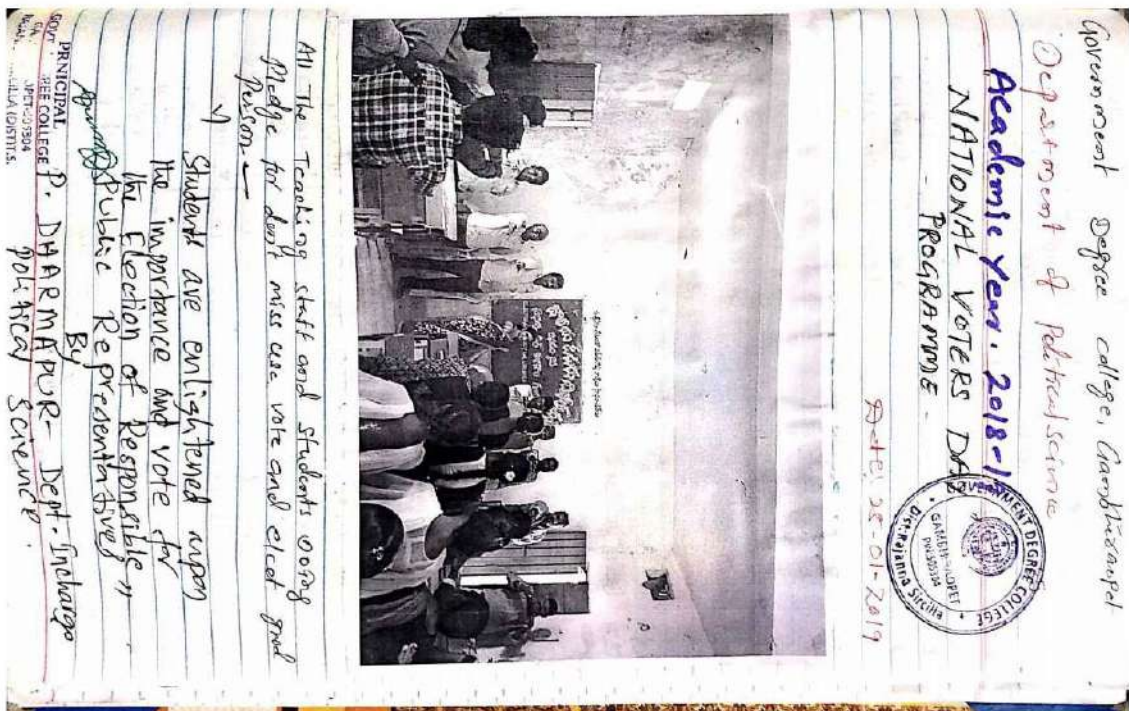 Government Degree college, Gambhiraopet
Department of Political science
Academic year. 2018-19
NATIONAL VOTERS DAY
PROGRAMME -
Date: 25-01-2019
GOVERNMENT DEGREE COLLEGE
GAMBHIRAOPET
PIN:505304
Dist: Rajanna Sircilla
All The Teaching staff and students
Pledge for don't miss use vote and elect good
Person —
Students are enlightened upon
the importance and vote for
the Election of Responsible
Public Representatives
By
P. DHARMAPURI- Dept. Incharge
political science.
PRNICIPAL
GOVT. DEGREE COLLEGE